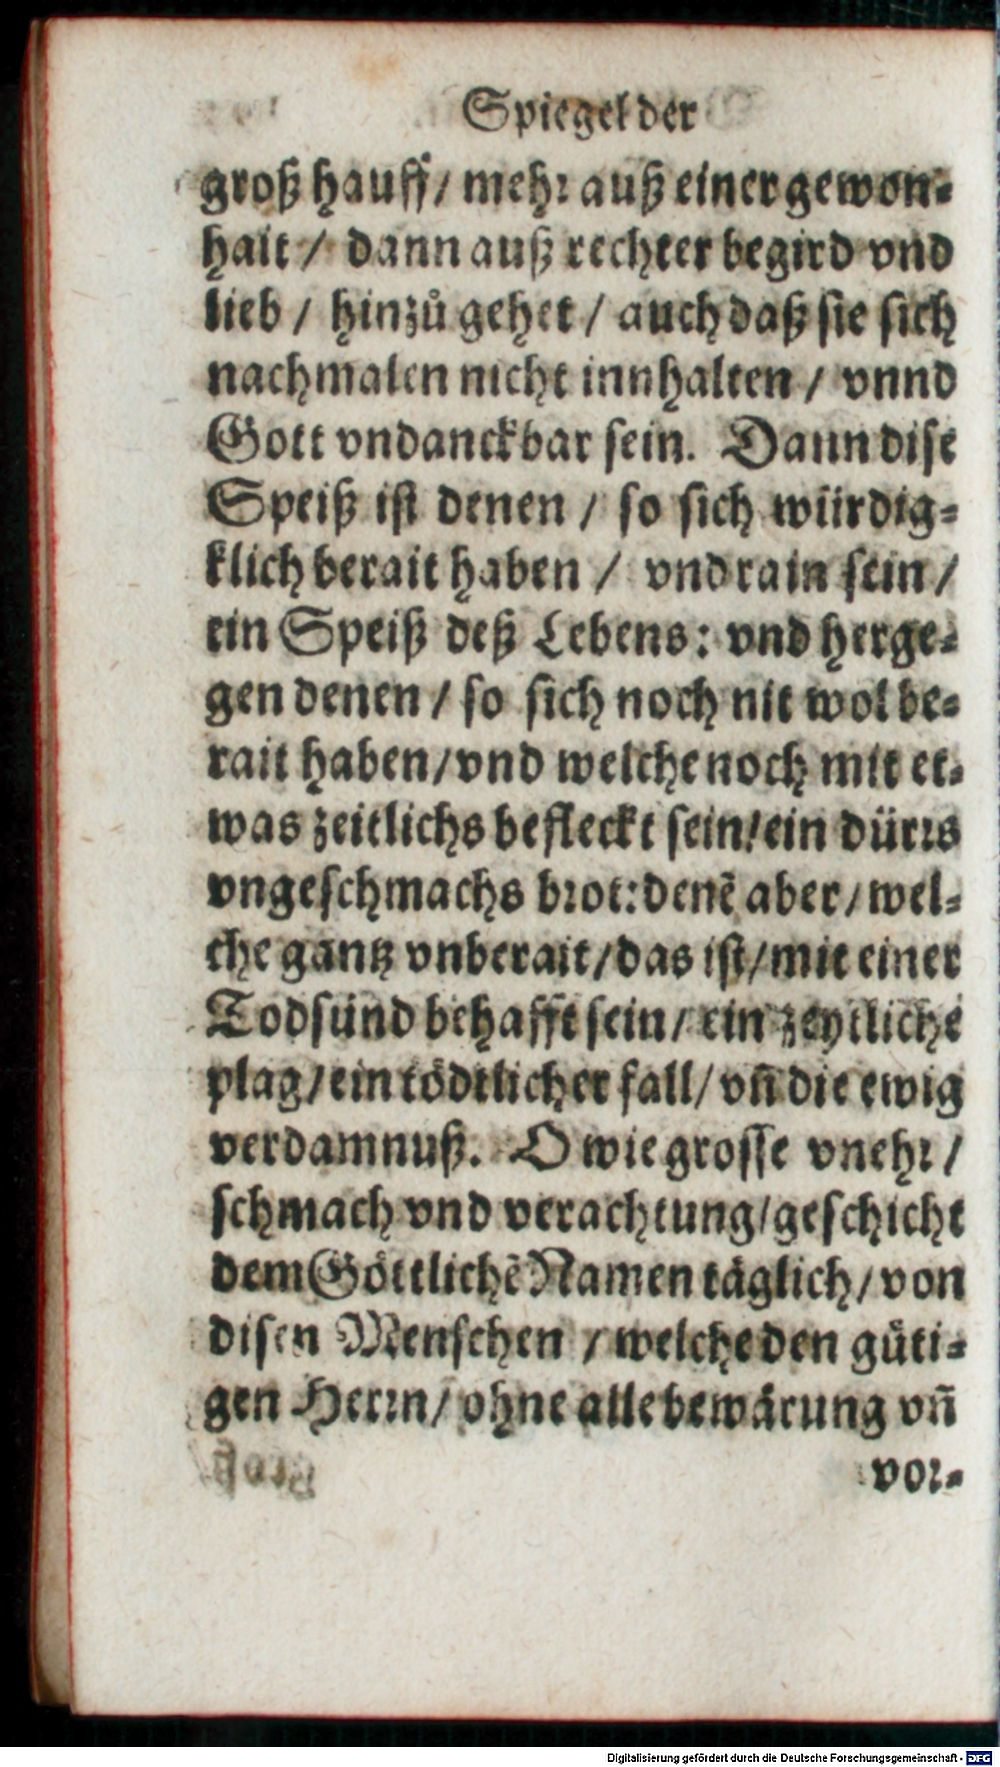 Spiegel der
groß hauff / mehr auß einer gewon-
hait / dann auß rechter begird vnd
lieb / hinzů gehet / auch daß sie sich
nachmalen nicht innhalten / vnnd
Gott vndanckbar sein. Dann dise
Speiß ist denen / so sich würdig-
klich berait haben / vnd rain sein /
ein Speiß deß Lebens: vnd herge-
gen denen / so sich noch nit wol be-
rait haben / vnd welche noch mit et-
was zeitlichs befleckt sein / ein dürrs
vngeschmachs brot: denē aber / wel-
che gantz vnberait / das ist / mit einer
Todsünd behafft sein / ein zeytliche
plag / ein tödtlicher fall / vn̄ die ewig
verdamnuß. O wie grosse vnehr /
schmach vnd verachtung / geschicht
dem Göttlichē Namen täglich / von
disen Menschen / welche den güti-
gen Herrn / ohne alle bewärung vn̄
vor-
Digitalisierung gefördert durch die Deutsche Forschungsgemeinschaft - DFG